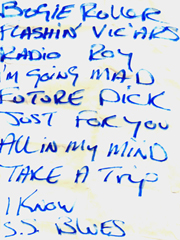 BOGIE ROLLER
FLASHIN' VICARS
RADIO ROY
I'M GOING MAD
FUTURE DICK
JUST FOR YOU
ALL IN MY MIND
TAKE A Trip
I KNOW
S.S BLUES